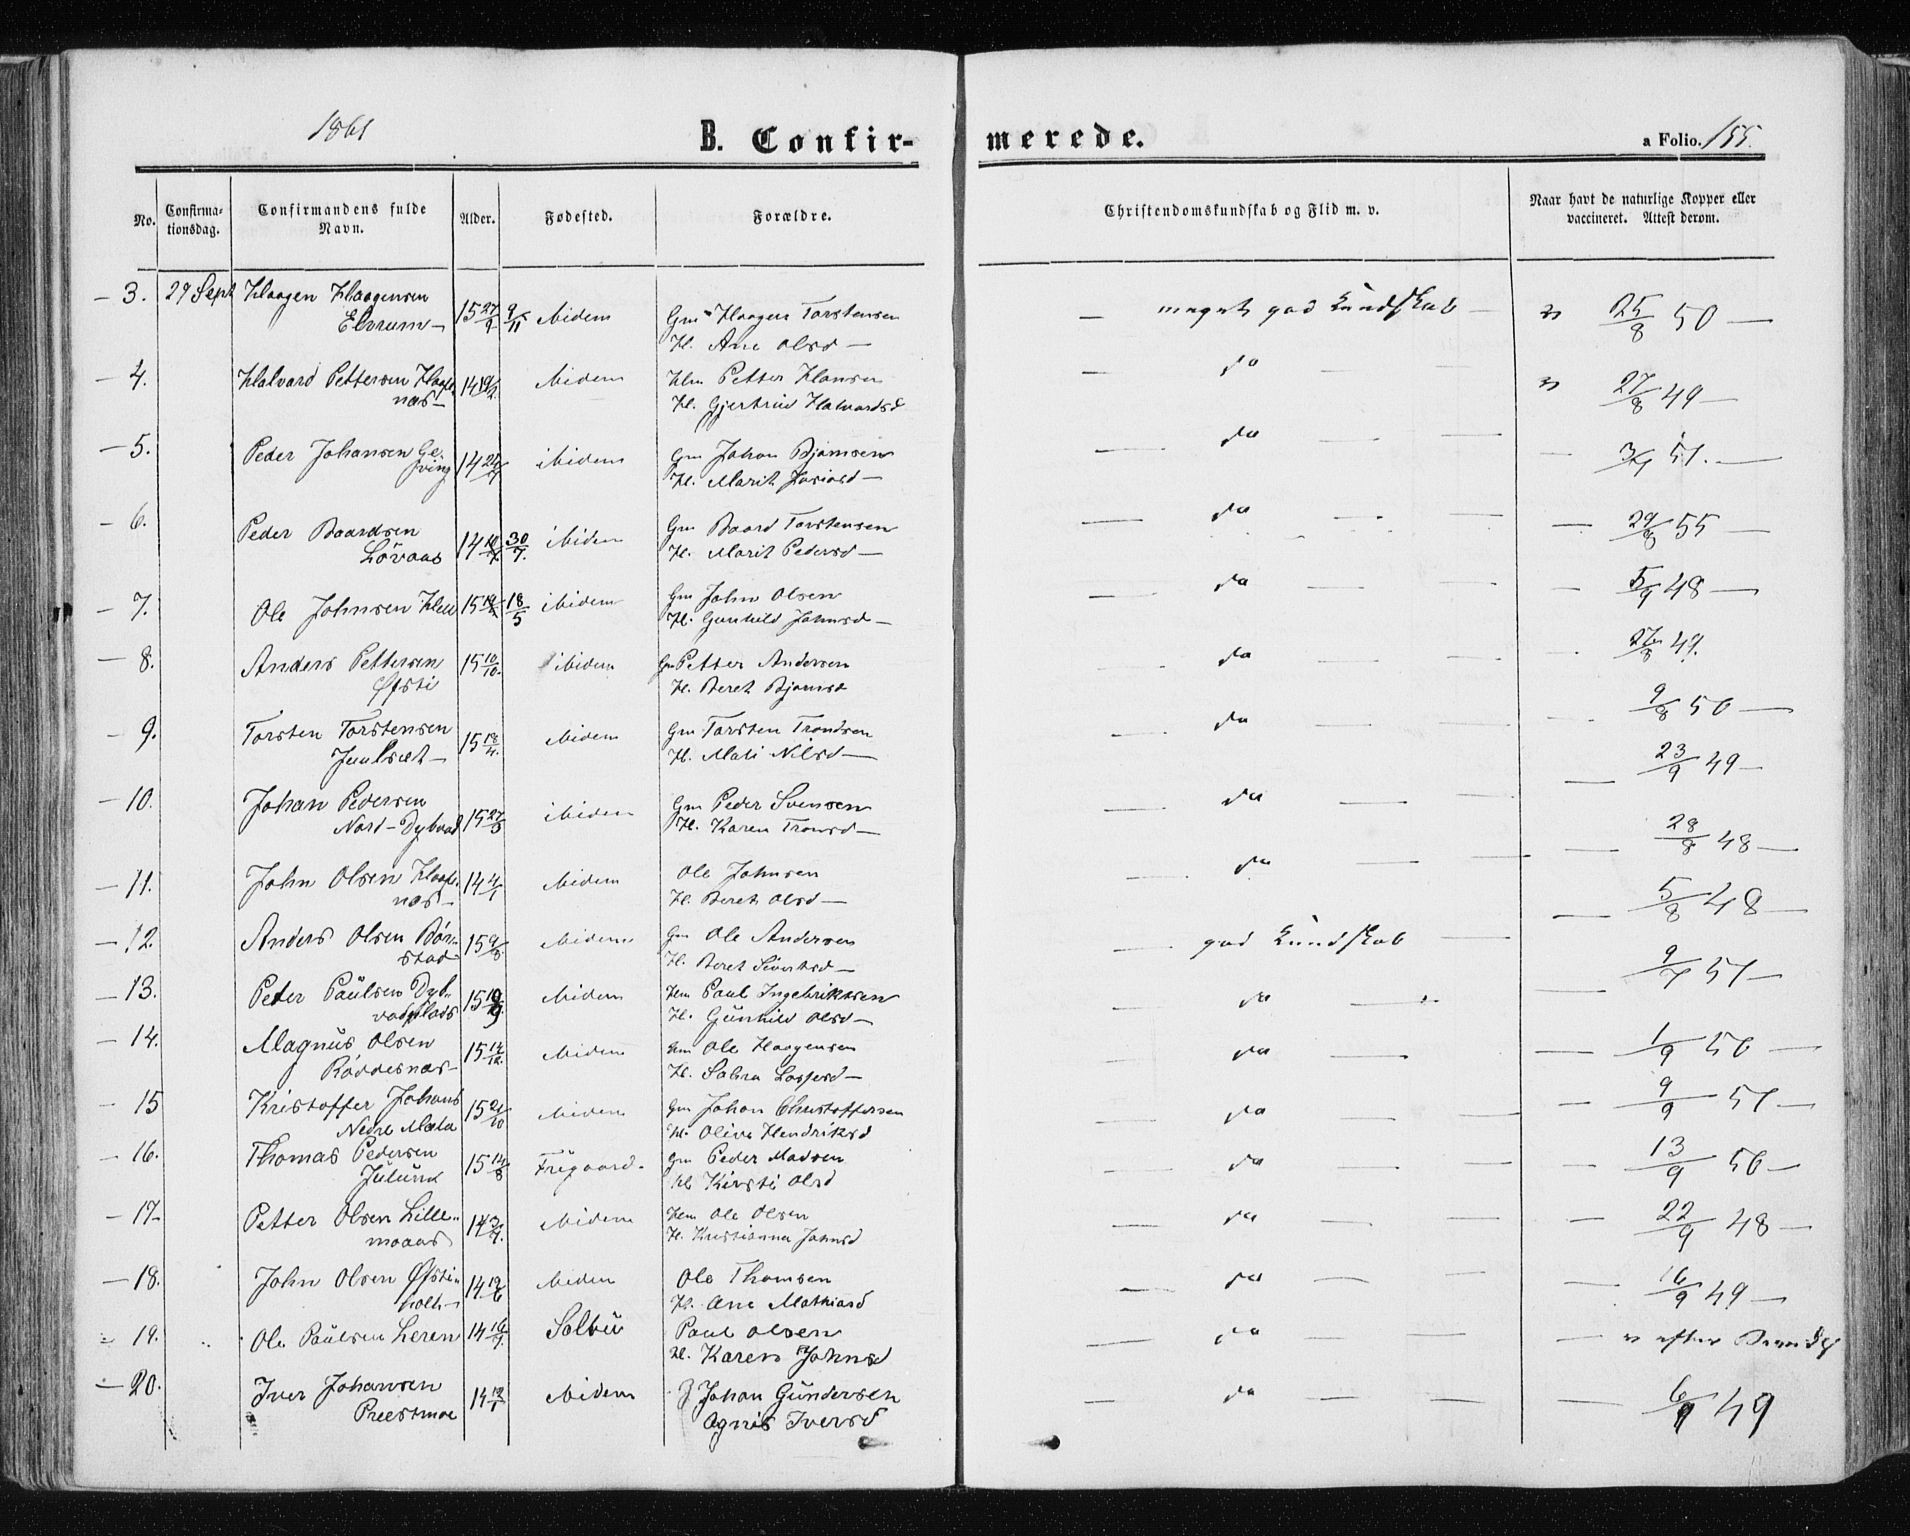 1861
B. Confir-
merede.
a Folio. 155.
No.
Confirma-
tionsdag.
Confirmandens fulde
Navn.
Alder.
Fødested.
Forældre.
Christendomskundskab og Flid m. v.
Naar havt de naturlige Kopper eller
vaccineret. Attest derom.
3. 29 Sept Haagen Haagensen
Elvrum 15 27/9 9/11 ibidem
Gm Haagen Torstensen
H. Ane Olsd
meget god Kundskab
25/8 50
4. Halvard Pettersen
14 ibidem
Hm Petter Hansen
H. Gjertrud Halvardsd
da
27/8 49
5. Peder Johansen Ge-
ving 14 ibidem
Gm Johan Bjørnsen
H. Marit
da
51.
6. Peder Baardsen
Løvaas 14 30/7. ibidem
Gm Baard Torstensen
H. Marit Pedersd
da
29/8 55
7. Ole Johnsen 15 18/5 ibidem
Gm John Olsen
H. Gunhild Johnsd
da
5/9 48
8. Anders Pettersen
Øfsti 15 10/10. ibidem
Gm Petter Andersen
H. Beret Bjørnsd
da
27/8 49.
9. Torsten Torstensen
15 18/4. ibidem
Gm Torsten Trondsen
H. Mali Nilsd
da
9/8 50
10. Johan Pedersen
Nord-Dybvad 15 27/3 ibidem
Gm Peder Svensen
H. Karen Tronsd
da
23/9 49
11. John Olsen
14 4/1 ibidem
Ole Johnsen
H. Beret Olsd
da
28/8 48
12. Anders Olsen Bør-
stad 15 9/8. ibidem
Gm Ole Andersen
H. Beret Sivertsd
god Kundskab
5/8 48
13. Peter Paulsen Dyb-
vadplads 15 ibidem
Hm Paul Ingebriktsen
H. Gunhild Olsd
da
9/7 51
14. Magnus Olsen
Røddesnæs 15 14/12. ibidem
Gm Ole Haagensen
H.
da
1/9 50
15 Kristoffer Johans
Nedre Mæla 15 21/10 ibidem
Gm Johan Christoffersen
H. Oliva Hendriksd
da
9/9 51
16. Thomas Pedersen
15 14/8 Frigaard
Gm Peder Madsen
H. Kirsti Olsd
da
13/9 50
17 Petter Olsen Lille-
moaas 14 ibidem
Hm Ole Olsen
H. Kristianna Johnsd
da
22/9 48
18. John Olsen Øfsti-
holt 14 19/6 ibidem
Ole Thomsen
H. Ane Mathiasd
da
16/9 49
19. Ole Paulsen Leren 14 Selbu
Paul Olsen
H. Karen Johnsd
da
efter
20. Iver Johansen
Præstmoe 14 12/1 ibidem
Johan Gundersen
Agnis Iversd
da
6/9 49